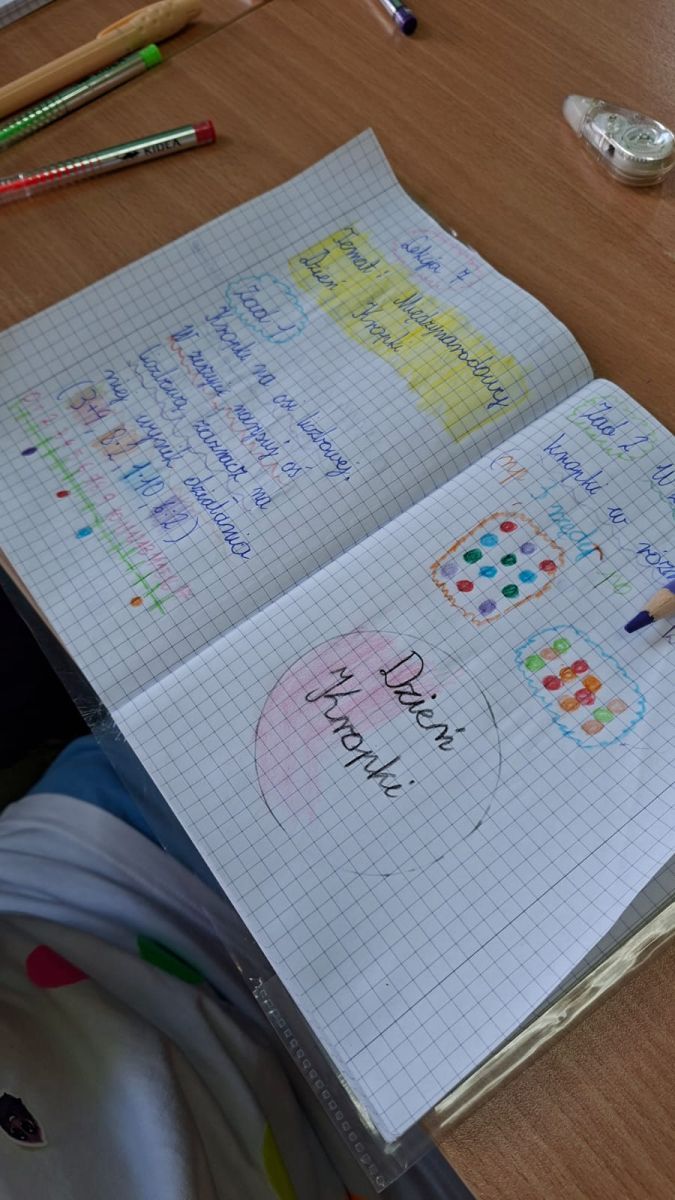 KIDEA
Lekcja 7
Temat: Międzynarodowy
Dzień Kropki
Zad 1
Kropki na osi liczbowej.
W zeszycie narysuj oś
liczbową zaznacz na
niej wynik działania
(3+4, 8:2, 1+10, 8·2)
Zad 2 W
kropki w różn
(np 3 rzędy
Dzień
Kropki